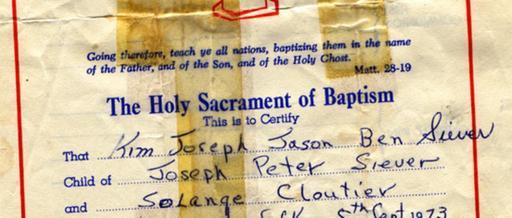 Going therefore, teach ye all nations, baptizing them in the name
of the Father, and of the Son, and of the Holy Ghost.
Matt. 28-19
The Holy Sacrament of Baptism
This is to Certify
That Kim Joseph Jason Ben Siever
Child of Joseph Peter Siever
and Solange Cloutier
5th Sept 1973